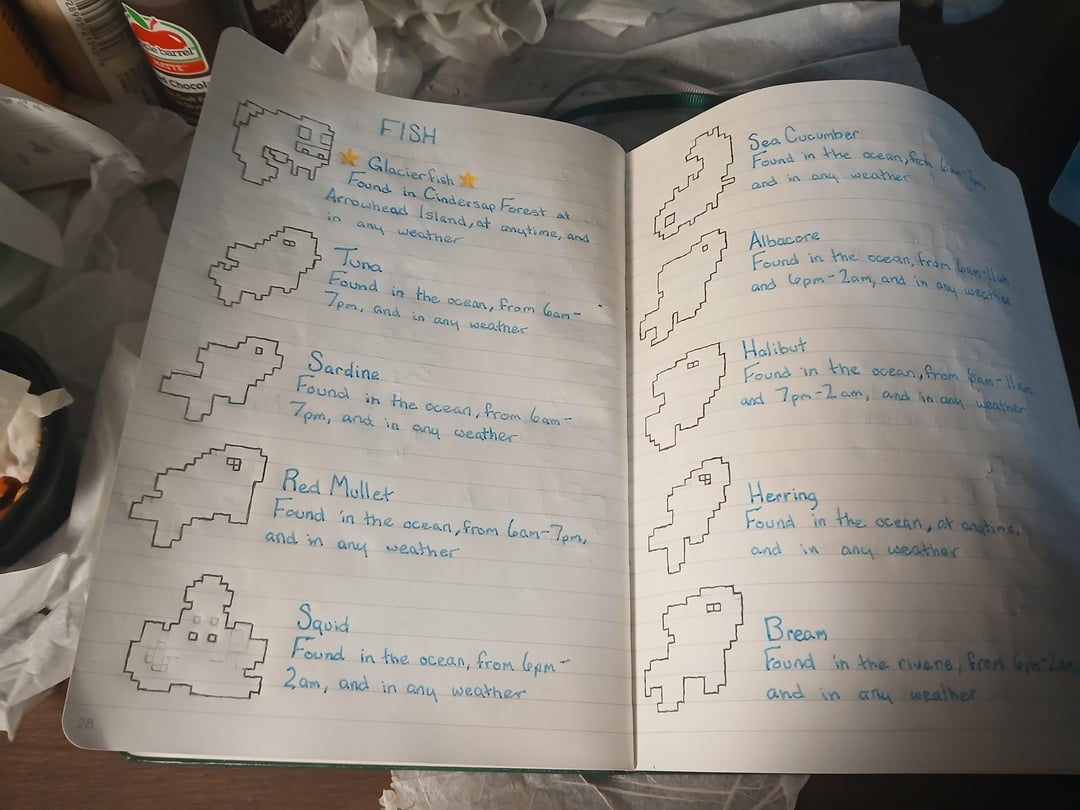 FISH
Glacierfish
Found in Cindersap Forest at
Arrowhead Island, at anytime, and
in any weather
Tuna
Found in the ocean, from 6am-
7pm, and in any weather
Sardine
Found in the ocean, from 6am-
7pm, and in any weather
Red Mullet
Found in the ocean, from 6am-7pm,
and in any weather
Squid
Found in the ocean, from 6pm-
2am, and in any weather
28
Sea Cucumber
Found in the ocean, 6am-7pm
and in any weather
Albacore
Found in the ocean, from 6am-11am
and 6pm-2am, and in any weather
Halibut
Found in the ocean, from 6am-11am
and 7pm-2am, and in any weather
Herring
Found in the ocean, at anytime,
and in any weather
Bream
Found in the rivers, from 6pm-2am,
and in any weather
barrel
MATTE